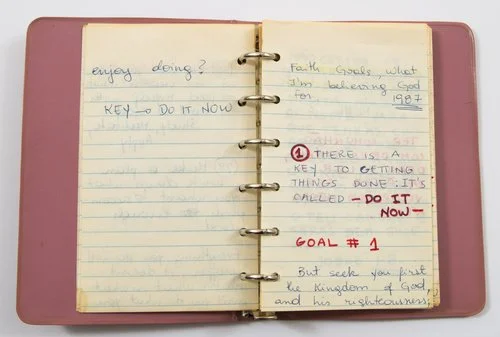 enjoy doing?
KEY → DO IT NOW
Faith Goals, what
I'm believing God
for. 1987
① THERE IS A
KEY TO GETTING
THINGS DONE: IT'S
CALLED - DO IT
NOW -
GOAL # 1
But seek you first
the Kingdom of God,
and his righteousness;